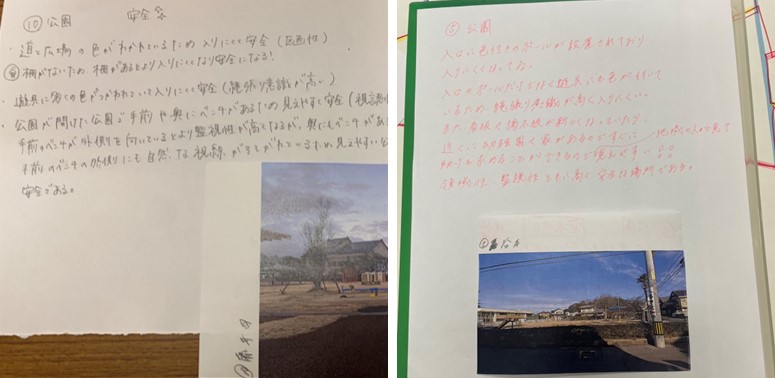 ⑩公園 安全☆
・道と広場の色がわかれているため入りにくく安全(区画性)
柵がないため、柵があるとより入りにくくなり安全になる!
・遊具に多くの色がつかわれていて入りにくく安全(縄張り意識が高い)
・公園が開けた公園で手前や奥にベンチがあるため見えやすく安全(視認性
手前のベンチが外側を向いているとより監視性が高くなるが、奥にもベンチがあ
手前のベンチの外側にも自然な視線が
いるため見えやすい公
安全である。
⑤公園
入口に色付きのポールが設置されており
入りにくくなってる。
入口のポールだけでなく遊具にも色が付いて
いるため、縄張り意識が高く入りにくい。
また、看板や掲示板が新しくなっていたり、
近くに幼稚園や家があるのですぐに
助けを求めることができるので
領域性、監視性ともに高く安全な場所である。